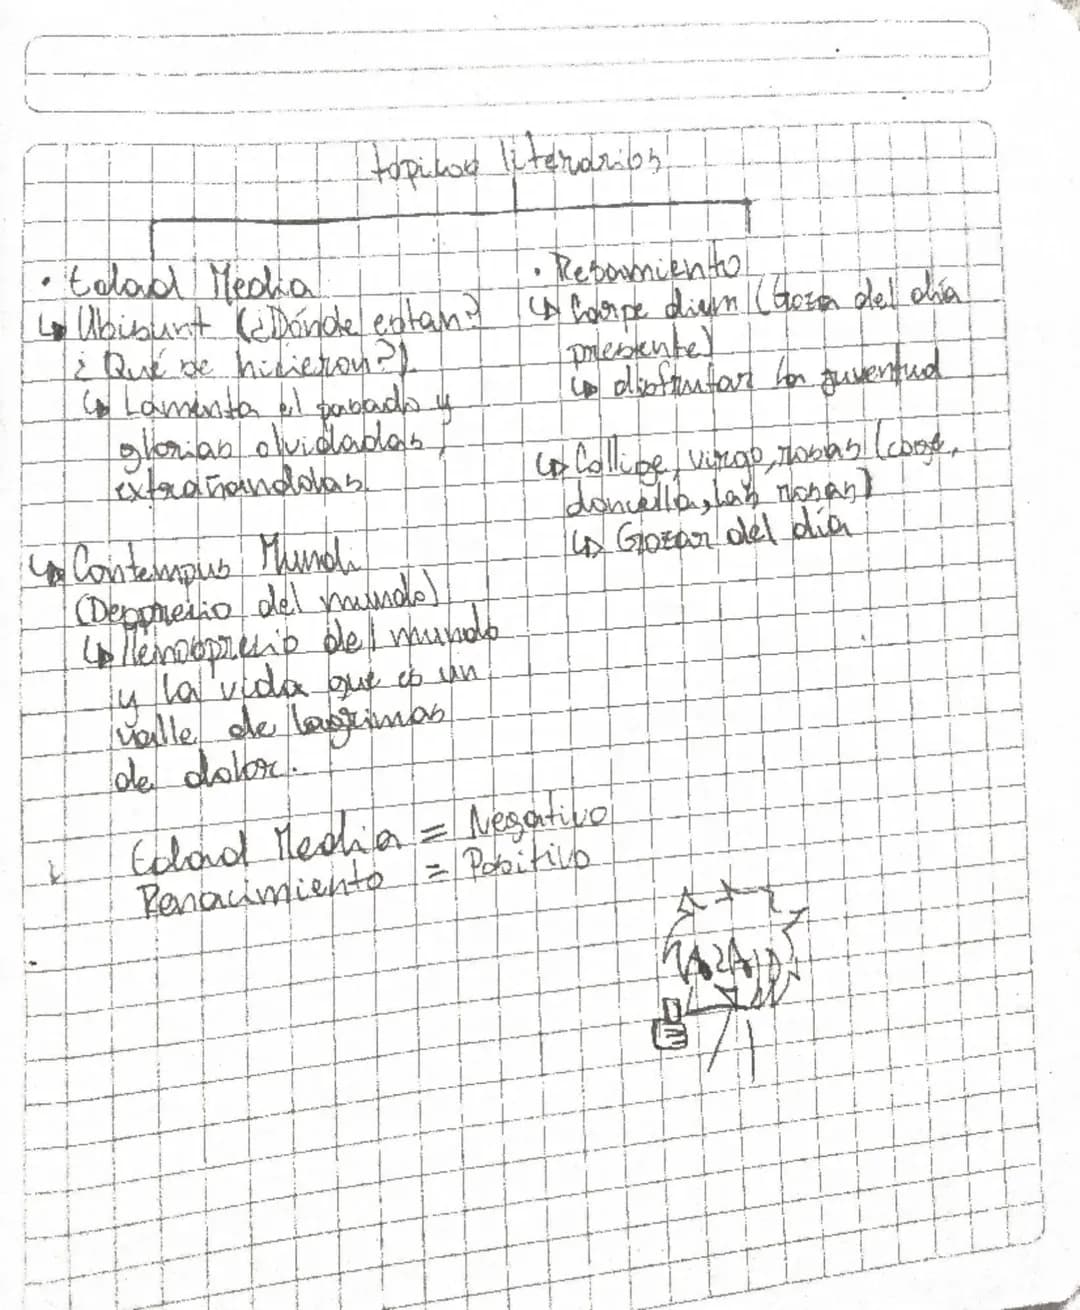 topicos literarios
• Edad Media
↳ Ubisunt (¿Dónde estan?
¿Qué se hicieron?)
↳ Lamenta el pasado y
glorias olvidadas,
extrañandolas
↳ Contempus Mundi
(Desprecio del mundo)
↳ Menosprecio del mundo
y la vida que es un
valle de lagrimas
de dolor.
• Renacimiento
↳ Carpe diem (Goza del día
presente)
↳ disfrutar la juventud
↳ Collige, virgo, rosas (coge,
doncella, las rosas)
↳ Gozar del día
Edad Media = Negativo
Renacimiento = Positivo